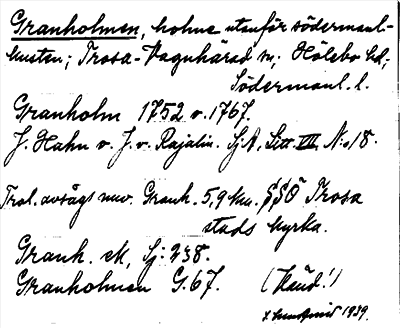 Granholmen, holme utanför södermanl-
kusten; Trosa-Vagnhärad sn; Hölebo hd,
Södermanl. l.
Granholm 1752 o. 1767.
J. Hahn o. J. v. Rajalin. Sj. A, Litt. VIII, N:o 18.
Trol. avsågs nuv. Granh. 5,9 km. SSÖ Trosa
stads kyrka.
Granh. ek, Sj: 238.
Granholmen G. 67.
1939.